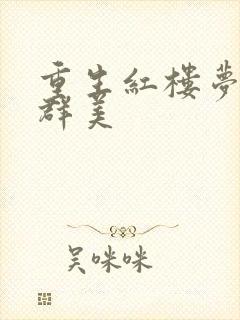 重生紅樓夢
群美
吴咪咪